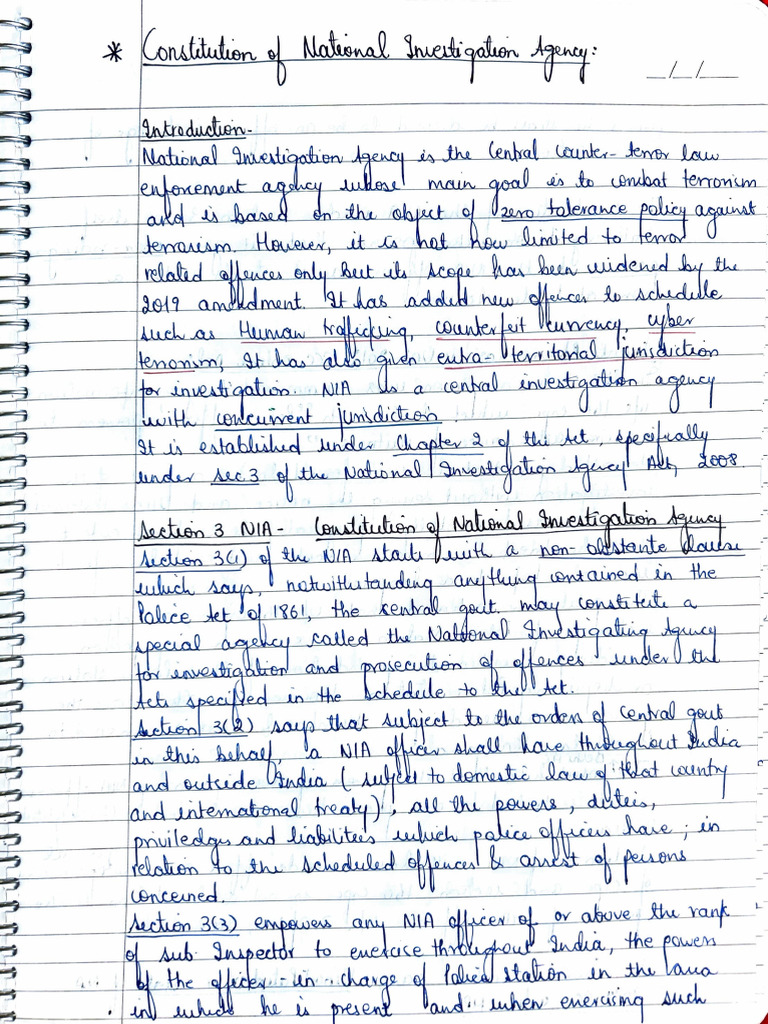 * Constitution of National Investigation Agency:
_/_/_
Introduction-
National Investigation Agency is the Central Counter-terror law
enforcement agency whose main goal is to combat terrorism
and is based on the object of zero tolerance policy against
terrorism. However, it is not now limited to terror
related offences only but its scope has been widened by the
2019 amendment. It has added new offences to schedule
such as Human trafficking, counterfeit currency, cyber
terrorism, It has also given extra-territorial jurisdiction
for investigation. NIA is a central investigation agency
with concurrent jurisdiction.
It is established under Chapter 2 of the Act, specifically
under sec.3 of the National Investigation Agency Act, 2008.
Section 3 NIA- Constitution of National Investigation Agency
Section 3(1) of the NIA starts with a non-obstante clause
which says, notwithstanding anything contained in the
Police Act of 1861, the central govt. may constitute a
special agency called the National Investigating Agency
for investigation and prosecution of offences under the
Acts specified in the schedule to the Act.
Section 3(2) says that subject to the orders of central govt
in this behalf, a NIA officer shall have throughout India
and outside India (subject to domestic law of that country
and international treaty), all the powers, duties,
priviledges and liabilities which police officers have; in
relation to the scheduled offences & arrest of persons
concerned.
Section 3(3) empowers any NIA officer of or above the rank
of sub Inspector to exercise throughout India, the powers
of the officer-in-charge of Police station in the area
in which he is present and when exercising such